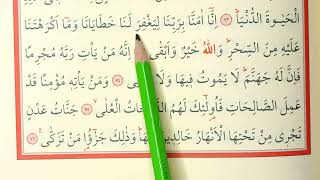 الْحَيٰوةَ الدُّنْيَا ﴿٧٢﴾ اِنَّٓا اٰمَنَّا بِرَبِّنَا لِيَغْفِرَ لَنَا خَطَايَانَا وَمَٓا اَكْرَهْتَنَا
عَلَيْهِ مِنَ السِّحْرِ وَاللّٰهُ خَيْرٌ وَاَبْقٰى ﴿٧٣﴾ اِنَّهُ مَنْ يَأْتِ رَبَّهُ مُجْرِمًا
فَاِنَّ لَهُ جَهَنَّمَ لَا يَمُوتُ فِيهَا وَلَا يَحْيٰى ﴿٧٤﴾ وَمَنْ يَأْتِهِ مُؤْمِنًا قَدْ
عَمِلَ الصَّالِحَاتِ فَاُولٰٓئِكَ لَهُمُ الدَّرَجَاتُ الْعُلٰى ﴿٧٥﴾ جَنَّاتُ عَدْنٍ
تَجْرِى مِنْ تَحْتِهَا الْاَنْهَارُ خَالِدِينَ فِيهَا وَذٰلِكَ جَزٰٓؤُا مَنْ تَزَكّٰى ﴿٧٦﴾